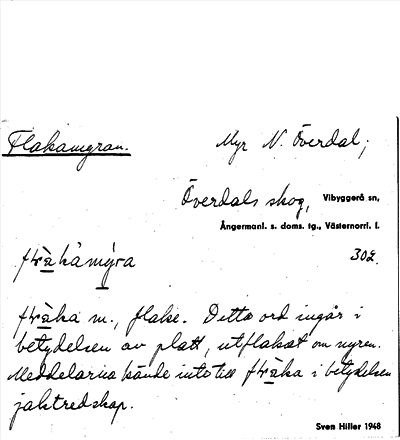 Flakamyran. Myr N. Överdal;
Överdals skog, Vibyggerå sn,
Ångermanl. s. doms. tg., Västernorrl. l.
302.
fḷàkàmy̲ra
fḷàka m., flake. Detta ord ingår i
betydelsen av platt, utflakat om myren.
Meddelarna kände inte till fḷàka i betydelsen
jaktredskap.
Sven Hiller 1948